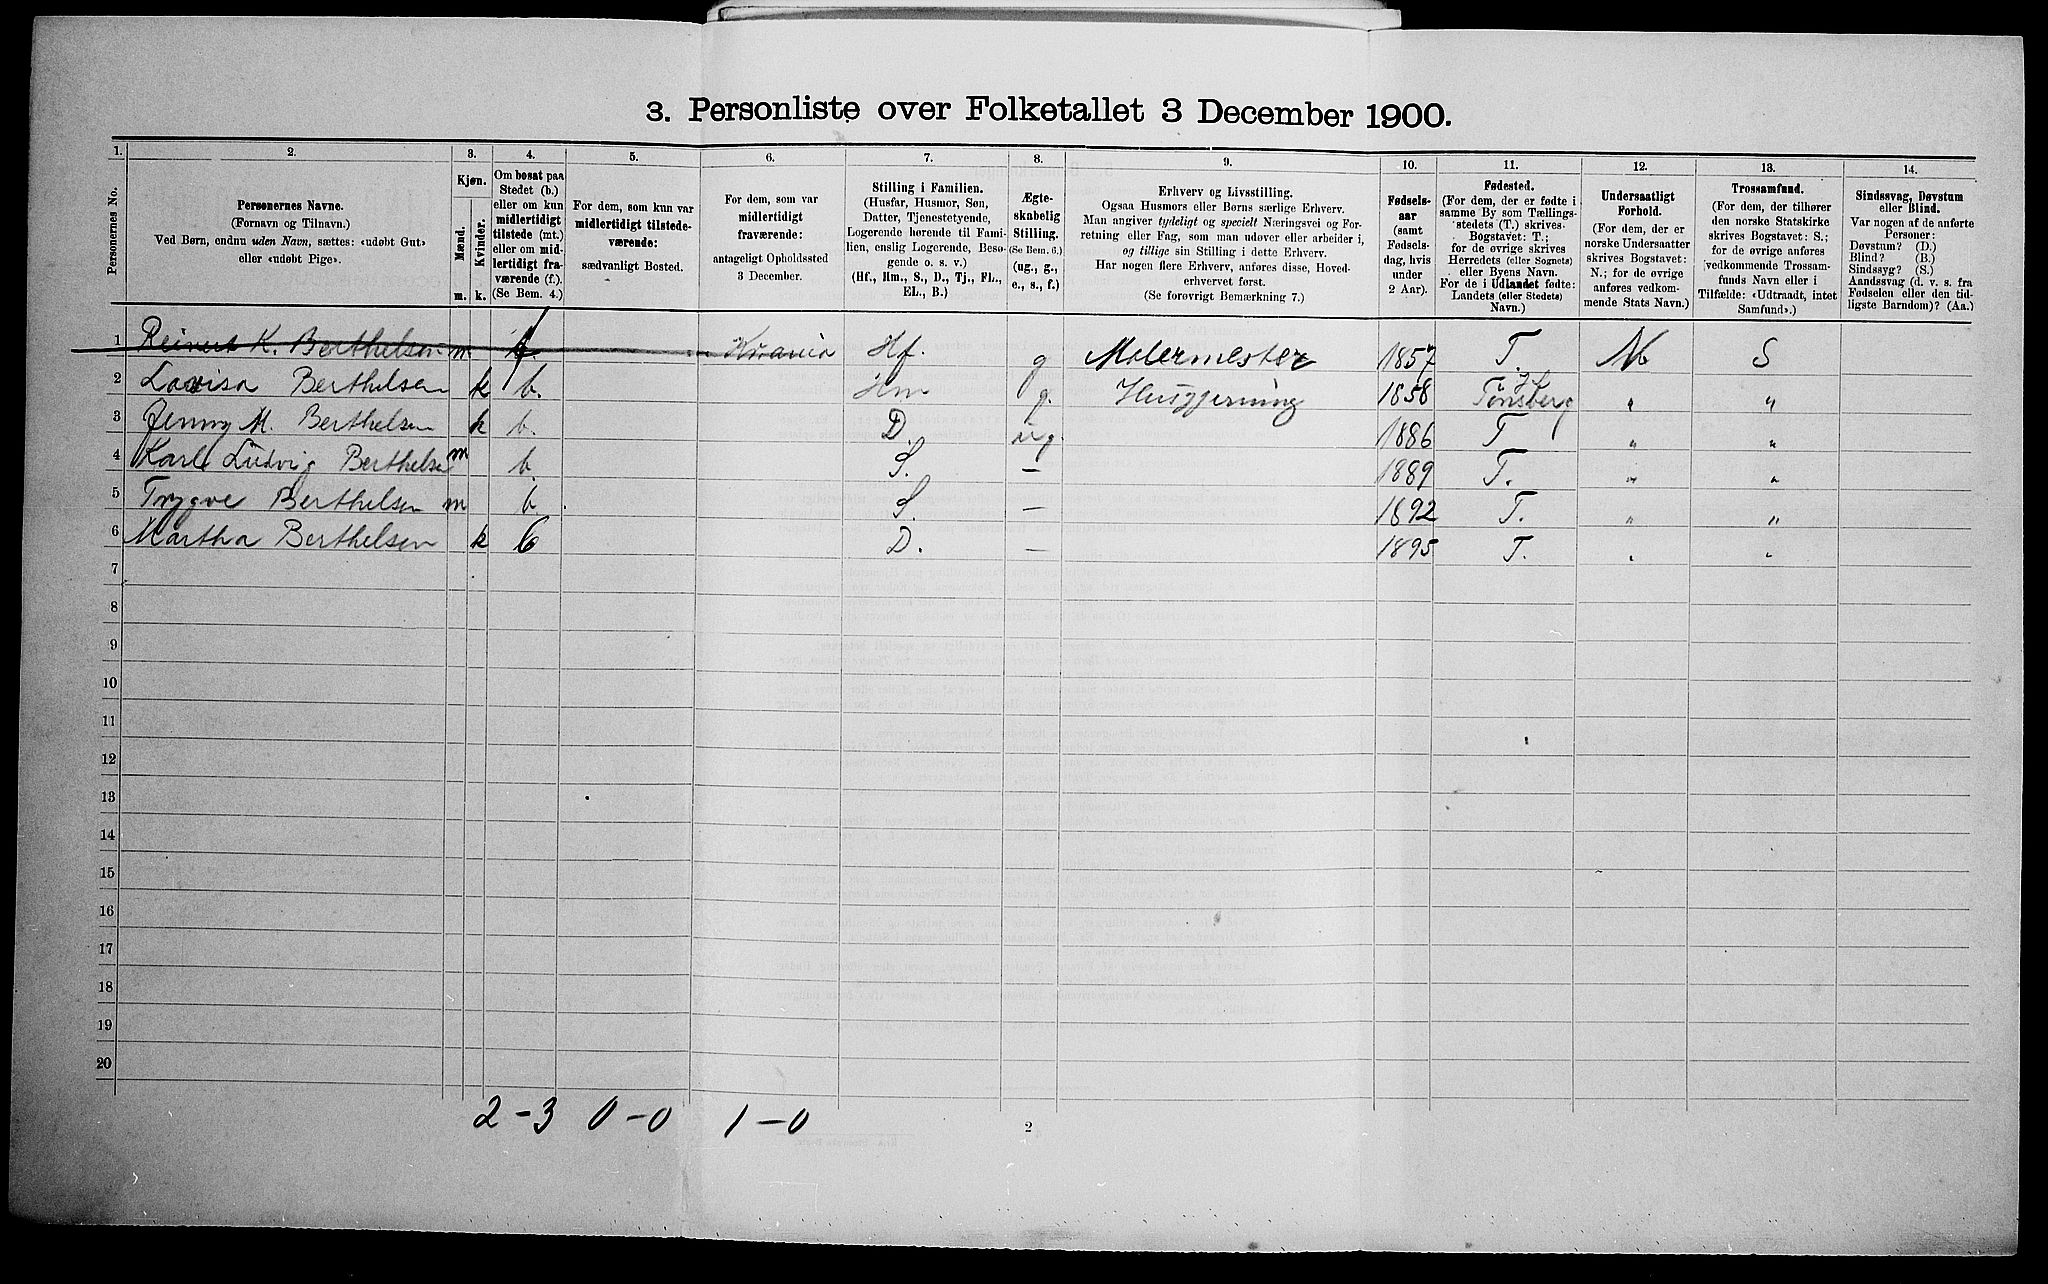 3. Personliste over Folketallet 3 December 1900.
1. 2. 3. 4. 5. 6. 7. 8. 9. 10. 11. 12. 13. 14.
Personernes No.
Personernes Navne.
(Fornavn og Tilnavn.)
Ved Børn, endnu uden Navn, sættes: «udøbt Gut»
eller «udøbt Pige».
Kjøn.
Mænd.
Kvinder.
m. k.
Om bosat paa
Stedet (b.)
eller om kun
midlertidigt
tilstede (mt.)
eller om mid-
lertidigt fra-
værende (f.).
(Se Bem. 4.)
For dem, som kun var
midlertidigt tilstede-
værende:
sædvanligt Bosted.
For dem, som var
midlertidigt
fraværende:
antageligt Opholdssted
3 December.
Stilling i Familien.
(Husfar, Husmor, Søn,
Datter, Tjenestetyende,
Logerende hørende til Fami-
lien, enslig Logerende, Besø-
gende o. s. v.)
(Hf., Hm., S., D., Tj., FL.,
EL., B.)
Ægte-
skabelig
Stilling.
(Se Bem. 6.)
(ug., g.,
e., s., f.)
Erhverv og Livsstilling.
Ogsaa Husmors eller Børns særlige Erhverv.
Man angiver tydeligt og specielt Næringsvei og For-
retning eller Fag, som man udøver eller arbeider i,
og tillige sin Stilling i dette Erhverv.
Har nogen flere Erhverv, anføres disse, Hoved-
erhvervet først.
(Se forøvrigt Bemærkning 7.)
Fødsels-
aar
(samt
Fødsels-
dag, hvis
under
2 Aar).
Fødested.
(For dem, der er fødte i
samme By som Tællings-
stedets (T.) skrives-
Bogstavet: T.;
for de øvrige skrives
Herredets (eller Sognets)
eller Byens Navn.
For de i Udlandet fødte:
Landets (eller Stedets)
Navn.)
Undersaatligt
Forhold.
(For dem, der er
norske Undersaatter
skrives Bogstavet:
N.; for de øvrige
anføres vedkom-
mende Stats Navn.)
Trossamfund.
(For dem, der tilhører
den norske Statskirke
skrives Bogstavet: S.;
for de øvrige anføres
vedkommende Trossam-
funds Navn eller i
Tilfælde: «Udtraadt, intet
Samfund».)
Sindssvag, Døvstum
eller Blind.
Var nogen af de anførte
Personer:
Døvstum? (D.)
Blind? (B.)
Sindssyg? (S.)
Aandssvag (d. v. s. fra
Fødselen eller den tid-
ligste Barndom)? (Aa.)
1 Reinert K. Berthelsen m. f. Hf. g Malermester 1857 T. N S
2 Lovisa Berthelsen k b. Hm g. Husgjerning 1858 Tønsberg " "
3 Jenny M. Berthelsen k b. D. ug. 1886 T " "
4 Karl Ludvig Berthelse m b. S. — 1889 T. " "
5 Trygve Berthelsen m b. S. — 1892 T. " "
6 Martha Berthelsen k b D. — 1895 T. " "
7
8
9
10
11
12
13
14
15
16
17
18
19
20
2 – 3 0 – 0 1 – 0
2